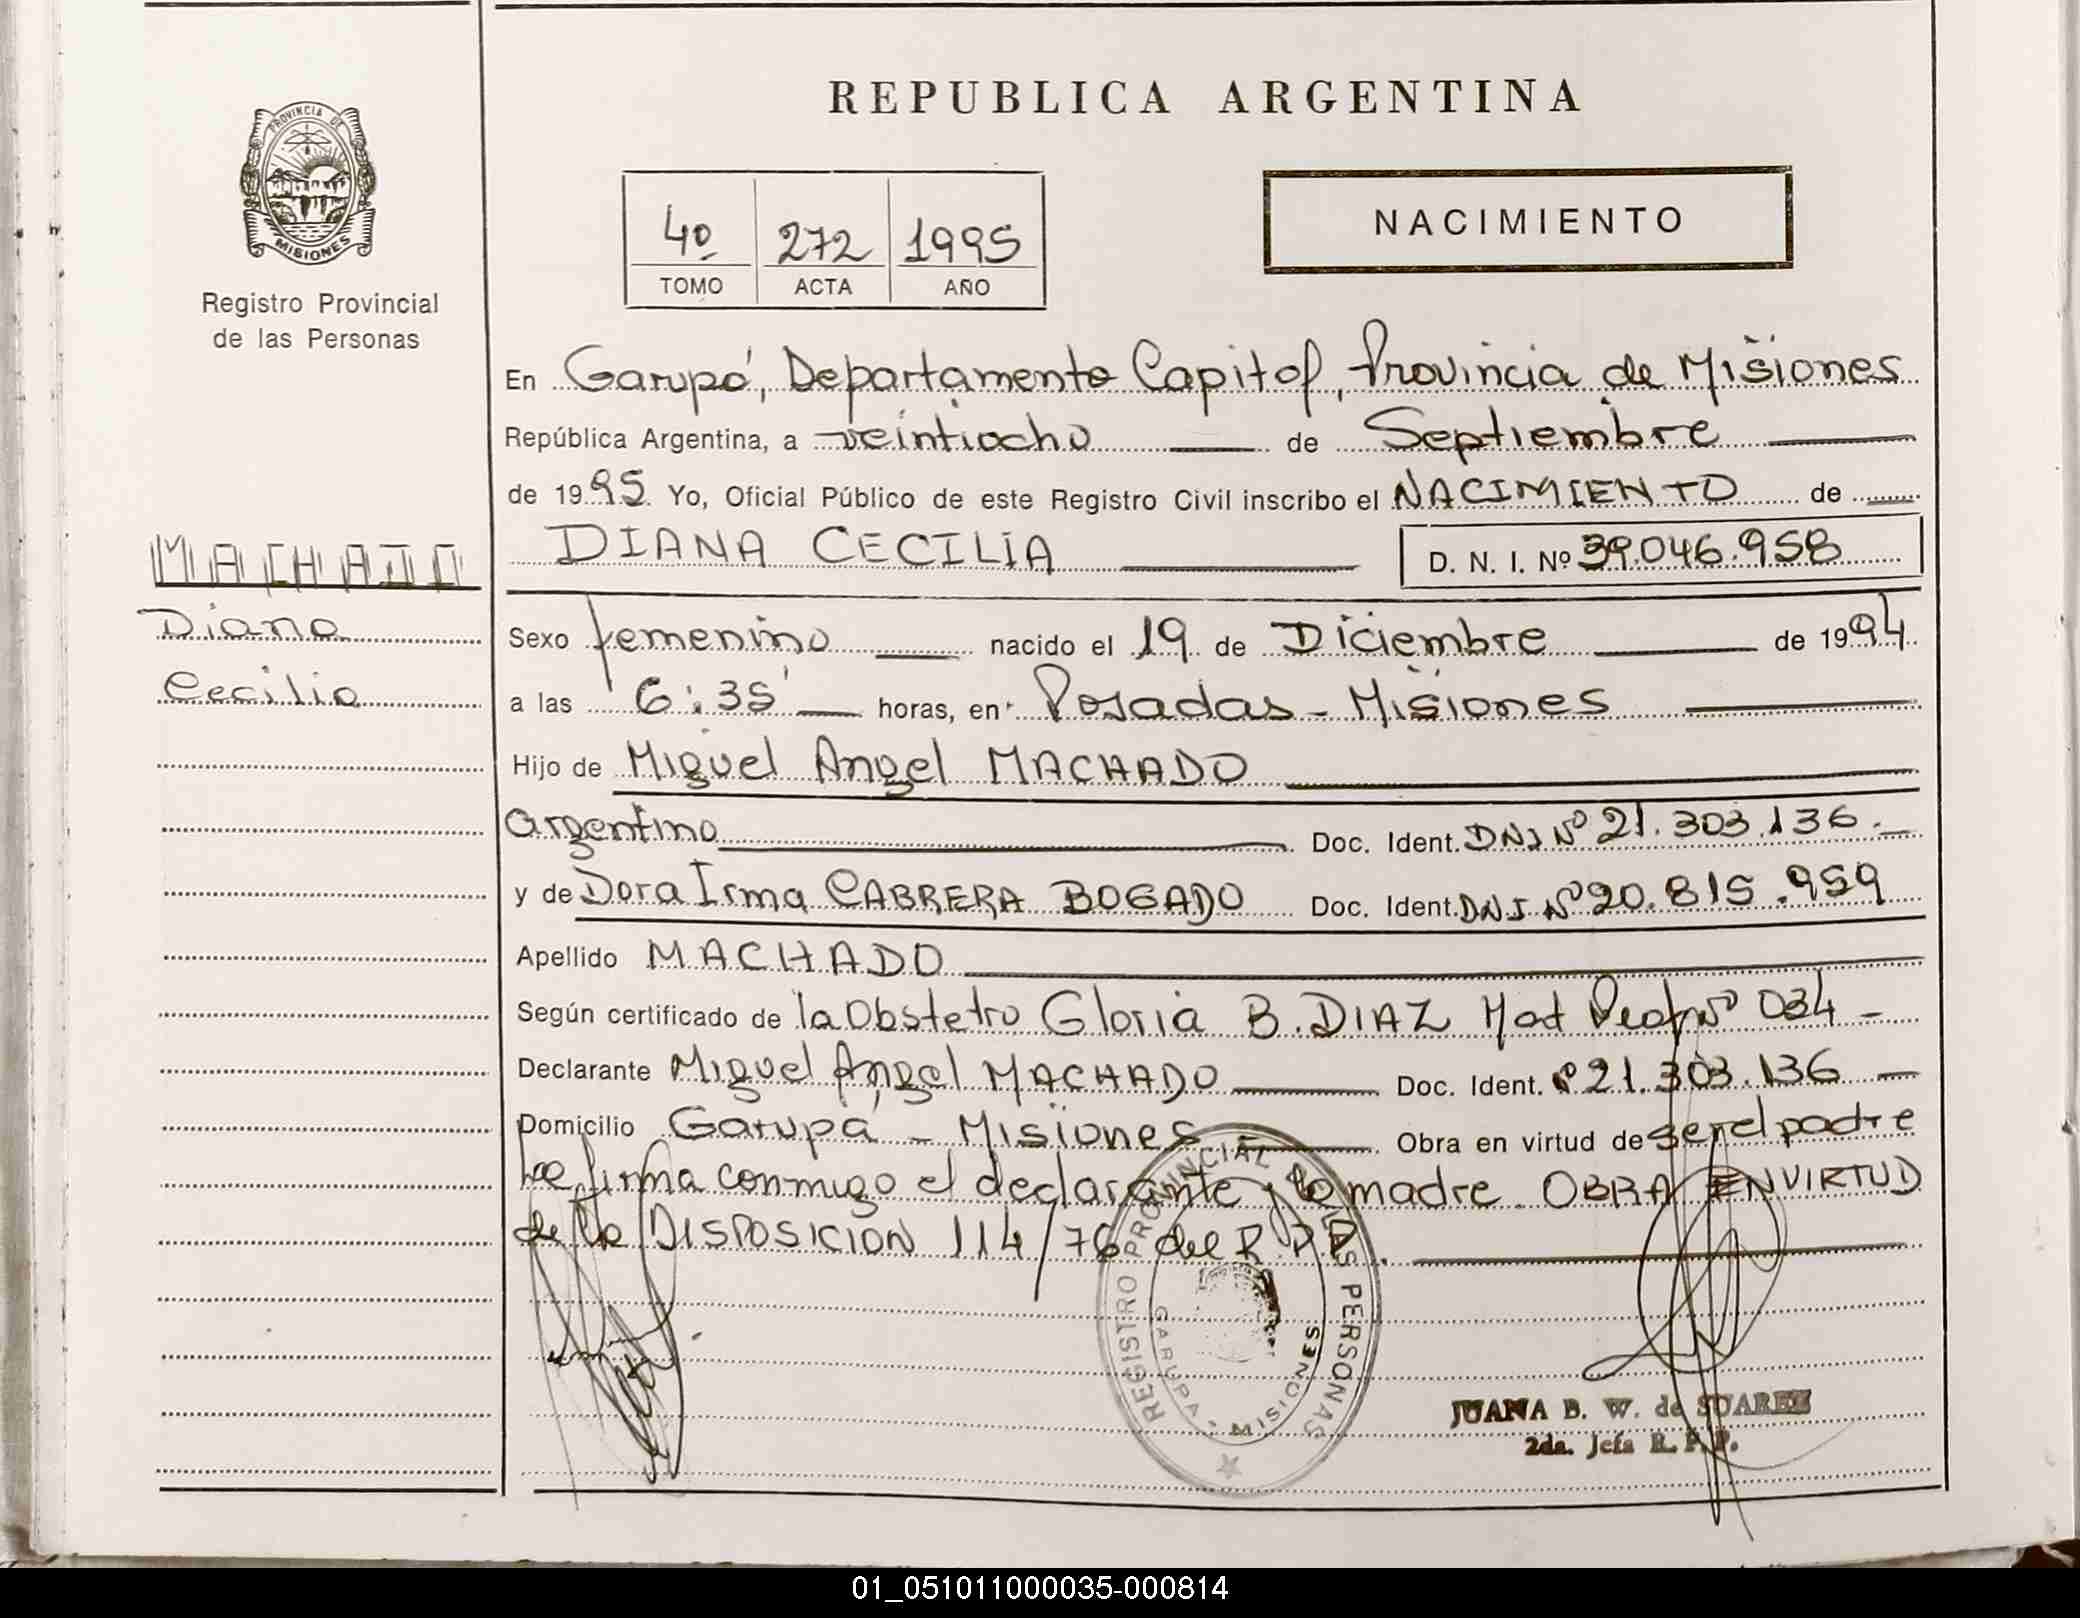 REPUBLICA ARGENTINA
PROVINCIA DE
MISIONES
Registro Provincial
de las Personas
4º 272 1995
TOMO ACTA AÑO
NACIMIENTO
En Garupá, Departamento Capital, Provincia de Misiones
República Argentina, a veintiocho de Septiembre
de 1995 Yo, Oficial Público de este Registro Civil inscribo el NACIMIENTO de
DIANA CECILIA D. N. I. Nº 39.046.958
MACHADO
Diana
Cecilia
Sexo femenino nacido el 19 de Diciembre de 1994
a las 6:35' horas, en Posadas - Misiones
Hijo de Miguel Angel MACHADO
argentino Doc. Ident. DNI Nº 21.303.136.-
y de Dora Irma CABRERA BOGADO Doc. Ident. DNI Nº 20.815.959
Apellido MACHADO
Según certificado de la Obstetra Gloria B. DIAZ Mat Nº 034 -
Declarante Miguel Angel MACHADO Doc. Ident. 21.303.136 -
Domicilio Garupá - Misiones Obra en virtud de ser el padre
firma conmigo el declarante y la madre. OBRA EN VIRTUD
de la DISPOSICION 114/76 del R.P.P.
REGISTRO PROVINCIAL DE LAS PERSONAS
GARUPA - MISIONES
JUANA B. W. de SUAREZ
2da. Jefa R. P. P.
01_051011000035-000814